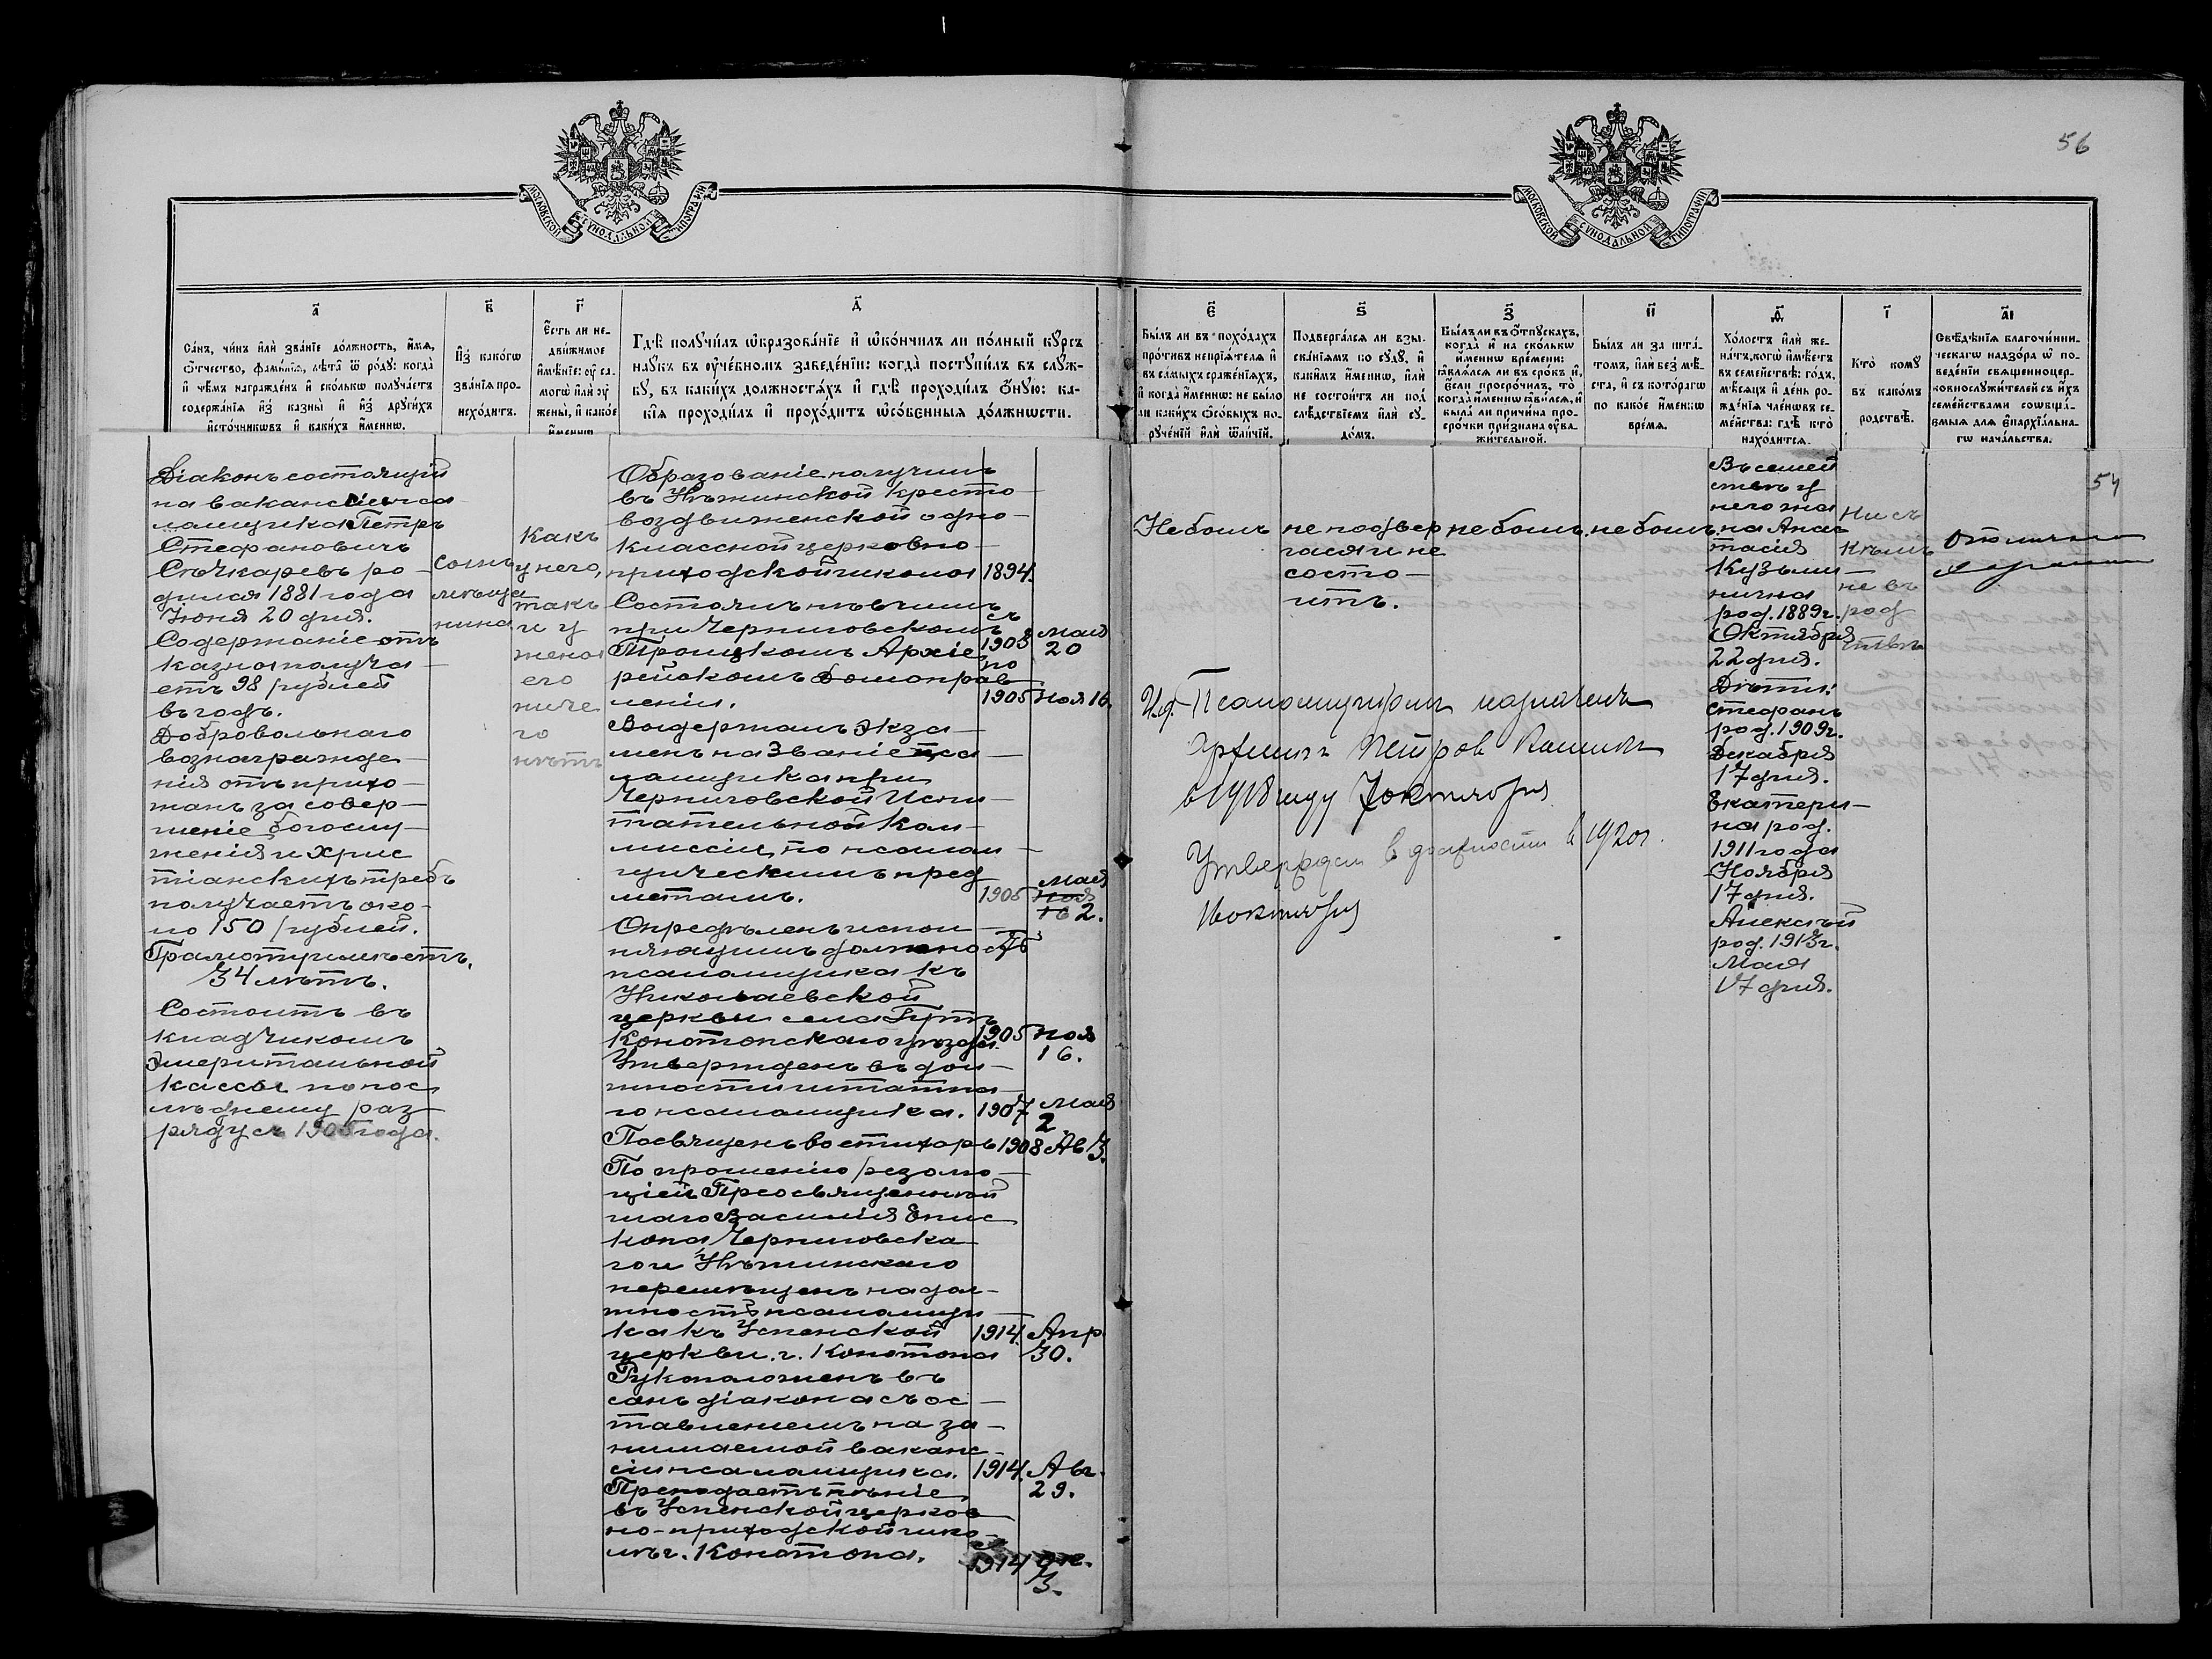 56
МОСКОВСКОЙ СѴНОДАЛЬНОЙ ТИПОГРАФІИ
МОСКОВСКОЙ СѴНОДАЛЬНОЙ ТИПОГРАФІИ
а҃
Са́нъ, чи́нъ и҆лѝ зва́нїе до́лжность, и҆́мѧ,
ѻ҆́тчество, фамѝлїѧ, лѣ́та ѿ ро́дꙋ: когда̀
и҆ чѣ́мъ награжде́нъ и҆ ско́лькѡ полꙋча́етъ
содержа́нїѧ и҆з̾ казны̀ и҆ и҆з̾ дрꙋги́хъ
и҆сто́чникѡвъ и҆ каки́хъ и҆́меннѡ.
в҃
И҆з̾ како́гѡ
зва́нїѧ про-
исхо́дитъ.
г҃
Є҆́сть ли не-
дви́жимое
и҆мѣ́нїе: ᲂу҆ са-
могѡ̀ и҆лѝ ᲂу҆
жены̀, и҆ како́е
и҆́меннѡ
д҃
Гдѣ̀ полꙋчи́лъ ѡ҆бразова́нїе и҆ ѡ҆ко́нчилъ ли по́лный кꙋ́рсъ
наꙋ́къ въ ᲂу҆че́бномъ заведе́нїи: когда̀ постꙋпи́лъ въ слꙋ́ж-
бꙋ, въ каки́хъ должностѧ́хъ и҆ гдѣ̀ проходи́лъ ѻ҆́нꙋю: ка-
кі́ѧ проходи́лъ и҆ прохо́дитъ ѡ҆со́бєнныѧ до́лжнѡсти.
Дiаконъ состоящiй
на вакансiи пса
ломщика Петръ
Стефановичъ
Сѣчкаревъ ро-
дился 1881 года
Iюня 20 дня.
Содержанiе отъ
казны получа-
етъ 98 рублей
въ годъ.
Добровольнаго
вознагражде-
нiя отъ прихо-
жанъ за совер-
шенiе богослу-
женiя и хрис
тiанскихъ требъ
получаетъ око-
ло 150 рублей.
Грамоту имѣетъ.
34 лѣтъ.
Состоитъ въ
кладчикомъ
эмеритальной
кассы по пос
лѣднему раз-
ряду съ 1905 года.
сынъ
мѣща
нина
Какъ
у него,
такъ
и у
жены
его
ниче
го
нѣтъ
Образованiе получилъ
въ Нѣжинской Кресто-
воздвиженской одно-
классной церковно-
приходской школѣ 1894.
Состоялъ пѣвчимъ
при Черниговскомъ съ 1903 Мая 20
Троицкомъ Архiе
рейскомъ Домоправ по
ленiи. 1905 Ноя 16.
Выдержалъ экза-
менъ на званiе пса-
ломщика при
Черниговской Испы-
тательной Ком-
миссiи, по псалом-
щическимъ пред
метамъ. 1905 Мая 2.
Опредѣленъ испол-
няющимъ должность
псаломщика къ
Николаевской
церкви села Гутъ
Конотопскаго уѣзда 1905 Ноя 16.
Утвержденъ въ дол-
жности штатна-
го псаломщика. 1907 Мая 2
Посвященъ во стихарь 1908 Ав 3.
По прошенiю резолю-
цiей Преосвященнѣй
шаго Василiя Епис
копа Черниговска-
го и Нѣжинскаго
перемѣщенъ на дол-
жность псаломщи-
ка къ Успенской 1914. Апр.
церкви г. Конотопа 30.
Рукоположенъ въ
санъ дiакона съ ос-
тавленiемъ на за-
нимаемой вакан-
сiи псаломщика. 1914. Авг.
Преподаетъ пѣнiе 29.
въ Успенской церков
но-приходской шко-
лѣ г. Конотопа. 1914 3.
є҃
Бы́лъ ли въ похо́дахъ
про́тивъ непрїѧ́телѧ и҆
въ са́мыхъ сраже́нїѧхъ,
и҆ когда̀ и҆́меннѡ: не бы́ло
ли каки́хъ ѻ҆со́быхъ по-
рꙋче́нїй и҆лѝ ѿли́чїй.
ѕ҃
Подверга́лсѧ ли взы-
ска́нїѧмъ по сꙋдꙋ̀, и҆
каки́мъ и҆́меннѡ, и҆лѝ
не состои́тъ ли под̾
слѣ́дствїемъ и҆лѝ сꙋ-
до́мъ.
з҃
Бы́лъ ли въ ѻ҆́тпꙋскахъ,
когда̀ и҆ на ско́лькѡ
и҆́меннѡ вре́мени:
ꙗ҆влѧ́лсѧ ли въ сро́къ и҆,
є҆́сли просро́чилъ, то̀
когда̀ и҆́меннѡ ꙗ҆ви́лсѧ, и҆
была̀ ли причи́на про-
сро́чки при́знана ᲂу҆ва-
жи́тельной.
и҃
Бы́лъ ли за шта́-
томъ, и҆лѝ без̾ мѣ́-
ста, и҆ съ кото́рагѡ
по како́е и҆́меннѡ
вре́мѧ.
ѳ҃
Хо́лостъ и҆лѝ же-
на́тъ, когѡ̀ и҆мѣ́етъ
въ семе́йствѣ: го́дъ,
мѣ́сѧцъ и҆ де́нь ро-
жде́нїѧ чле́нѡвъ се-
ме́йства: гдѣ̀ кто̀
нахо́дитсѧ.
і҃
Кто̀ комꙋ̀
въ како́мъ
родствѣ̀.
а҃і
Свѣ́дѣнїѧ благочи́нни-
ческагѡ надзо́ра ѡ҆ по-
веде́нїи свѧще́нноцер-
ковнослꙋжи́телей съ и҆́хъ
семе́йствами сообща́-
ємыѧ для є҆парxїа́льна-
гѡ нача́льства.
54
Не былъ
не подвер
гася и не
состо-
итъ.
не былъ.
не былъ.
Въ семей
ствѣ у
него жена
Анас
тасiя
Кузьми-
нична
род. 1889 г.
Октября
22 дня.
Дѣти:
Стефанъ
род. 1909 г.
Декабря
17 дня.
Екатери-
на род.
1911 года
Ноября
17 дня.
Алексѣй
род. 1913 г.
Мая
17 дня.
Ни съ
кѣмъ
не въ
род
ствѣ
И.д. Псаломщиком назначен
Петров
в 1918 году 7 октября
Утвержден в должности в 1920 г.
октября